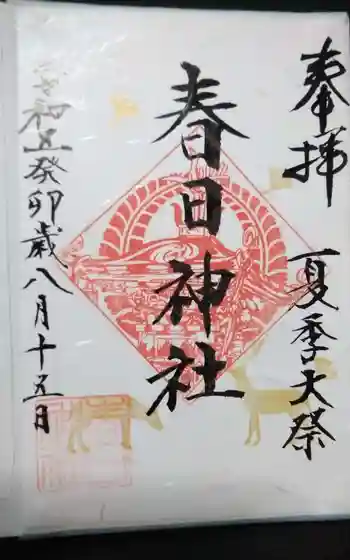 奉拝
夏季大祭
春日神社
令和五癸卯歳八月十五日